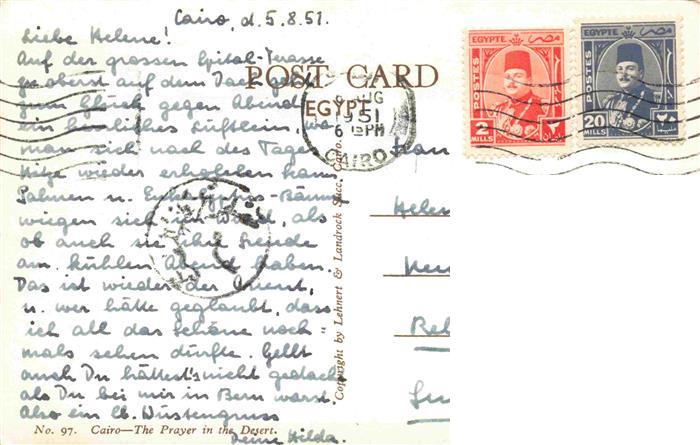 Cairo, d. 5.8.51.
Liebe Helene!
Auf der grossen Spital-Terrasse
zu oberst auf dem Dach
zum Glück gegen Abend
ein herrliches Lüftlein, wo
man sich nach des Tages
Hitze wieder erholen kann.
Palmen u. Eukalyptus-Bäume
wiegen sich im Wind, als
ob auch sie ihre Freude
am kühlen Abend haben.
Das ist wieder der Orient,
u. wer hätte geglaubt, dass
ich all das Schöne noch-
mals sehen dürfte. Gellt
auch Du hättest's nicht gedacht
als Du bei mir in Bern warst.
Also ein lb. Wüstengruss
Deine Hilda.
POST CARD
EGYPT
AUG
1951
6 15PM
CAIRO
EGYPTE
مصر
POSTES
2
MILLS
٢
EGYPTE
مصر
POSTES
20
MILLS
٢٠
Copyright by Lehnert & Landrock Succ. Cairo.
No. 97. Cairo—The Prayer in the Desert.